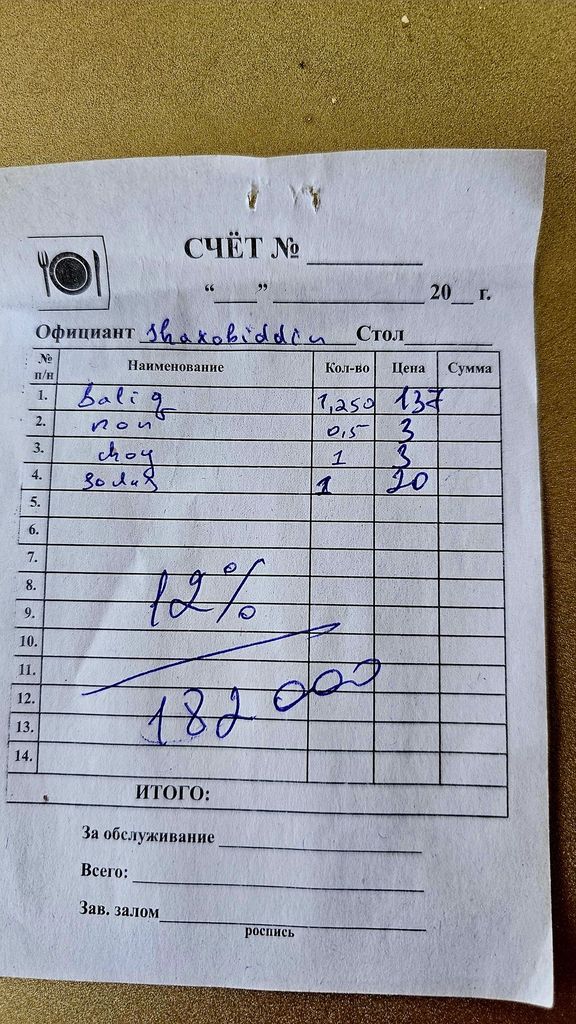 СЧЁТ №
“ ” 20 г.
Официант Shaxobiddin Стол
№ п/п Наименование Кол-во Цена Сумма
1. baliq 1,250 137
2. non 0,5 3
3. choy 1 3
4. 1 20
5.
6.
7.
8.
12%
9.
10.
11.
12.
182 000
13.
14.
ИТОГО:
За обслуживание
Всего:
Зав. залом
роспись